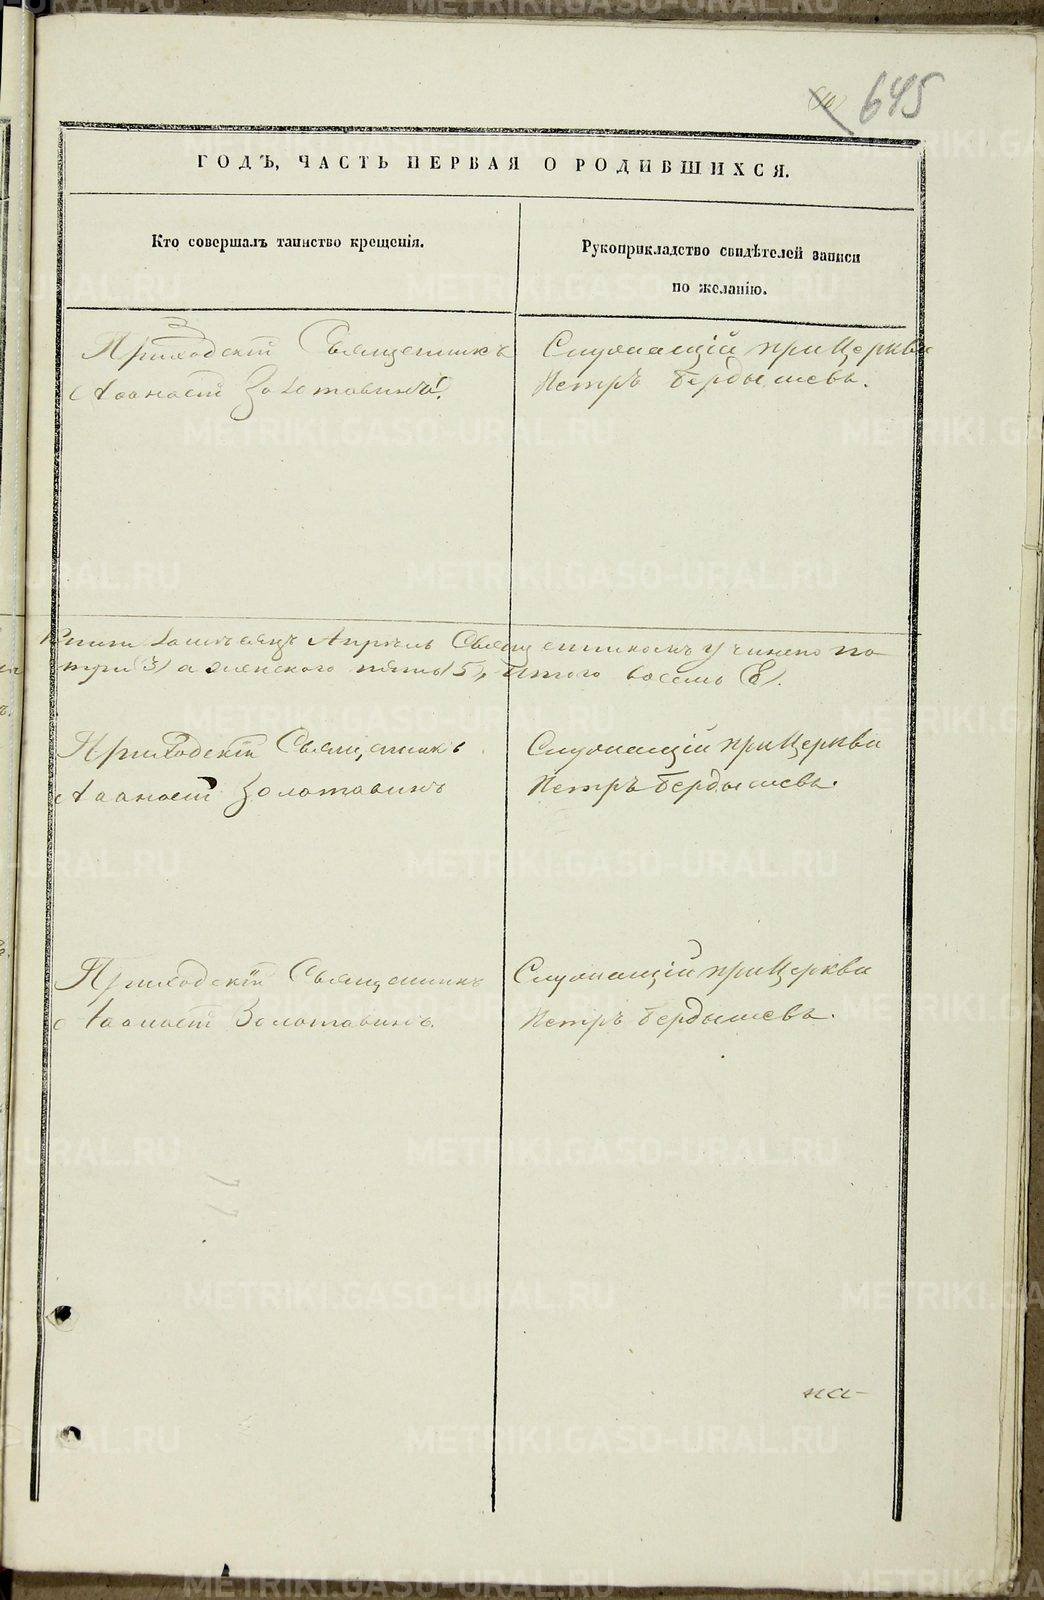 645
ГОДЪ, ЧАСТЬ ПЕРВАЯ О РОДИВШИХСЯ.
Кто совершалъ таинство крещенія.
Рукоприкладство свидѣтелей записи
по желанію.
Приходскій Священникъ
Аѳанасій Золотавинъ.
Служащій при Церкви
Петръ Бердышевъ.
Апрѣль Священникомъ учинено по
три 3) а женского пять 5, Итого восемь 8).
Приходскій Священникъ
Аѳанасій Золотавинъ
Служащій при Церкви
Петръ Бердышевъ.
Приходскій Священникъ
Аѳанасій Золотавинъ.
Служащій при Церкви
Петръ Бердышевъ.
на-
METRIKI.GASO-URAL.RU